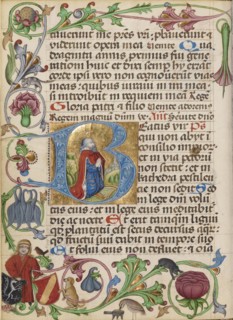 tauerunt me pr̄es vr̄i: p̄bauerunt
viderunt opera mea Venite Qua
draginta annis prorimus fui gene
rationi huic et dixi semp hij errāt
corde ipsi vero non cognouerūt vias
meas: quibus iuraui in ira mea
si introibūt in requiem meā Rege
Gloria patri & filio Venite adorem
Regem magnū dn̄m ve Añt
Beatus vir
qui non abijt
consilio impior
et in via peccatoꝝ
non stetit: et in
cathedra pestilen
ne non sedit Sed
in lege dn̄i volun
eius: et in lege eius meditabit
die ac nocte Et erit tamqm̄ lignū
qd̄ plantatū est secus decursus aquaꝝ
qd̄ fructū suū dabit in tempore suo
Et foliū eius non defluet: & oīa